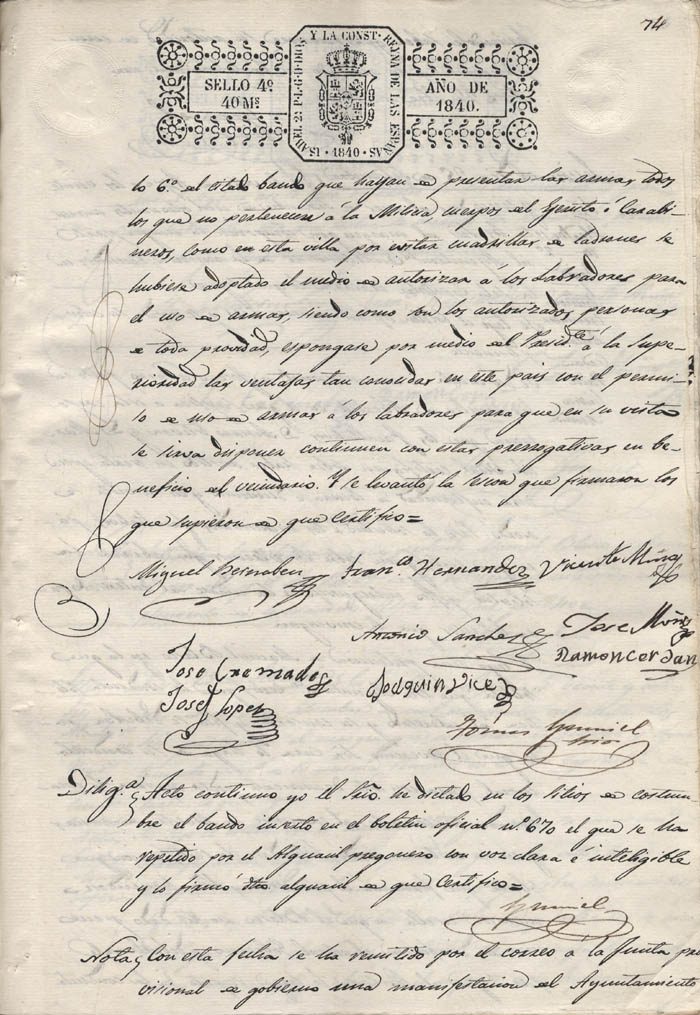 74
SELLO 4º
40 Ms
ISABEL 2ª P. L. G. D. DIOS Y LA CONST. REYNA DE LAS ESPAÑAS
· 1840 ·
AÑO DE
1840.
lo 6º del citado bando que hayan de presentar las armas todos
los que no pertenecen á la Milicia cuerpos del Egército ó Carabi-
neros, como en esta villa por evitar cuadrillas de ladrones se
hubiese adoptado el medio de autorizar á los Labradores para
el uso de armas, siendo como son los autorizados personas
de toda providad, espongase por medio del Presidte á la Supe-
rioridad las ventajas tan conocidas en este pais con el permi-
so de uso de armas á los labradores para que en su vista
se sirva disponer continuen con estas prerrogativas en be-
neficio del vecindario. Y se levantó la sesion que firmaron los
que supieron de que Certifico=
Miguel Bernabeu Franco Hernandez Vicente Muñoz
Antonio Sanchez Jose Muñoz
Jose Cremades Joaquin Vice Ramon Cerdan
Josef Lopez
Tomas
Srio.
Diliga Acto continuo yo el Srio. he dictado en los sitios de costum
bre el bando inserto en el boletin oficial nº 670 el que se ha
repetido por el Alguacil pregonero con voz clara é inteligible
y lo firmó dho alguacil de que Certifico=
Nota Con esta fecha se ha remitido por el correo a la Junta pro
visional de gobierno una manifestacion del Ayuntamiento